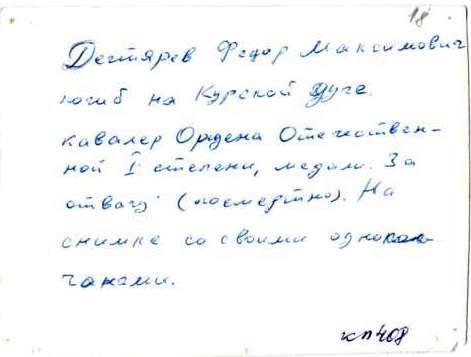 18
Дегтярев Федор Максимович
погиб на Курской дуге.
кавалер Ордена Отечествен-
ной I степени, медали. За
отвагу (посмертно). На
снимке со своими однокан-
чанами.
кп 468